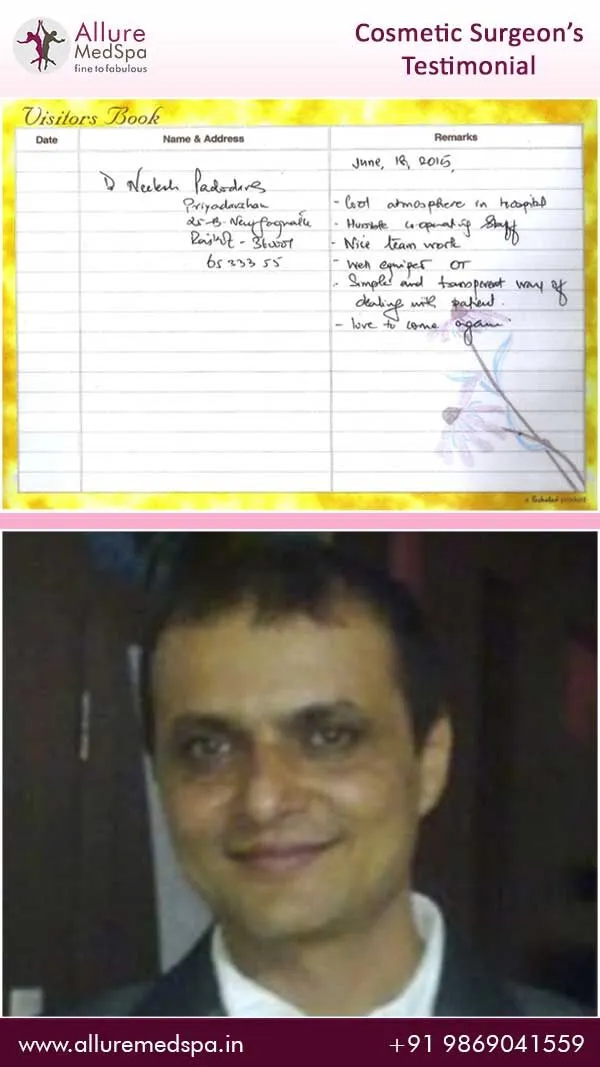 Allure
MedSpa
fine to fabulous
Cosmetic Surgeon's
Testimonial
Visitors Book
Date
Name & Address
Remarks
June, 18, 2015,
Priyadarshan
Rajkot - 360001
65 233 55
- Cool atmosphere in hospital
- Humble co-operating staff
- Nice team work
- Well equiper OT
- Simple and transperent way of
dealing with patient.
- love to come again
www.alluremedspa.in
+91 9869041559